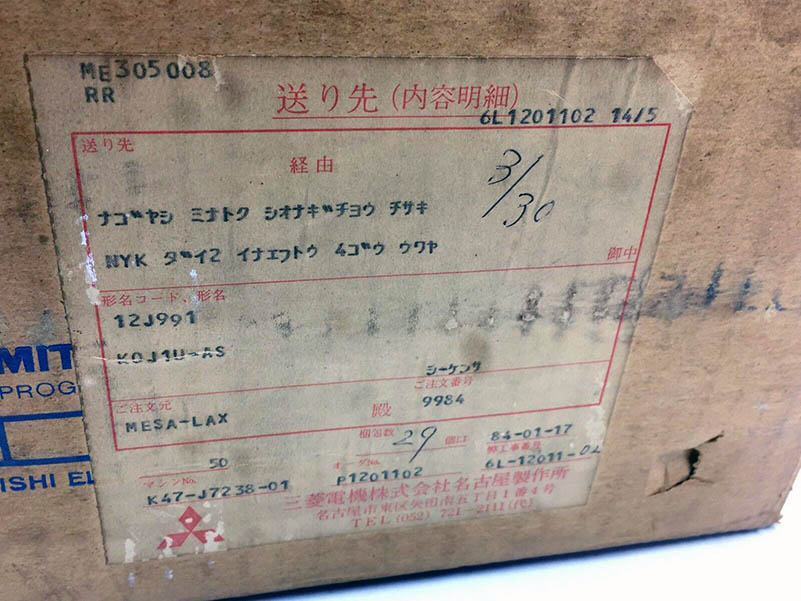 ME305008
RR
送り先(内容明細)
6L1201102 14/5
送り先
経由
3/30
ナゴヤシ ミナトク シオナギチョウ チサキ
NYK ダイ2 イナエフトウ 4ゴウ ウワヤ
御中
形名コード、形名
12J991
K0J1U-AS
シーケンサ
ご注文元
ご注文番号
MESA-LAX
殿
9984
梱包数 29 個口
84-01-17
50
マシンNo.
オーダNo.
弊工事番号
K47-J7238-01
P1201102
6L-12011-02
三菱電機株式会社名古屋製作所
名古屋市東区矢田南五丁目1番4号
TEL(052) 721-2111(代)
MIT
PROG
ISHI EL